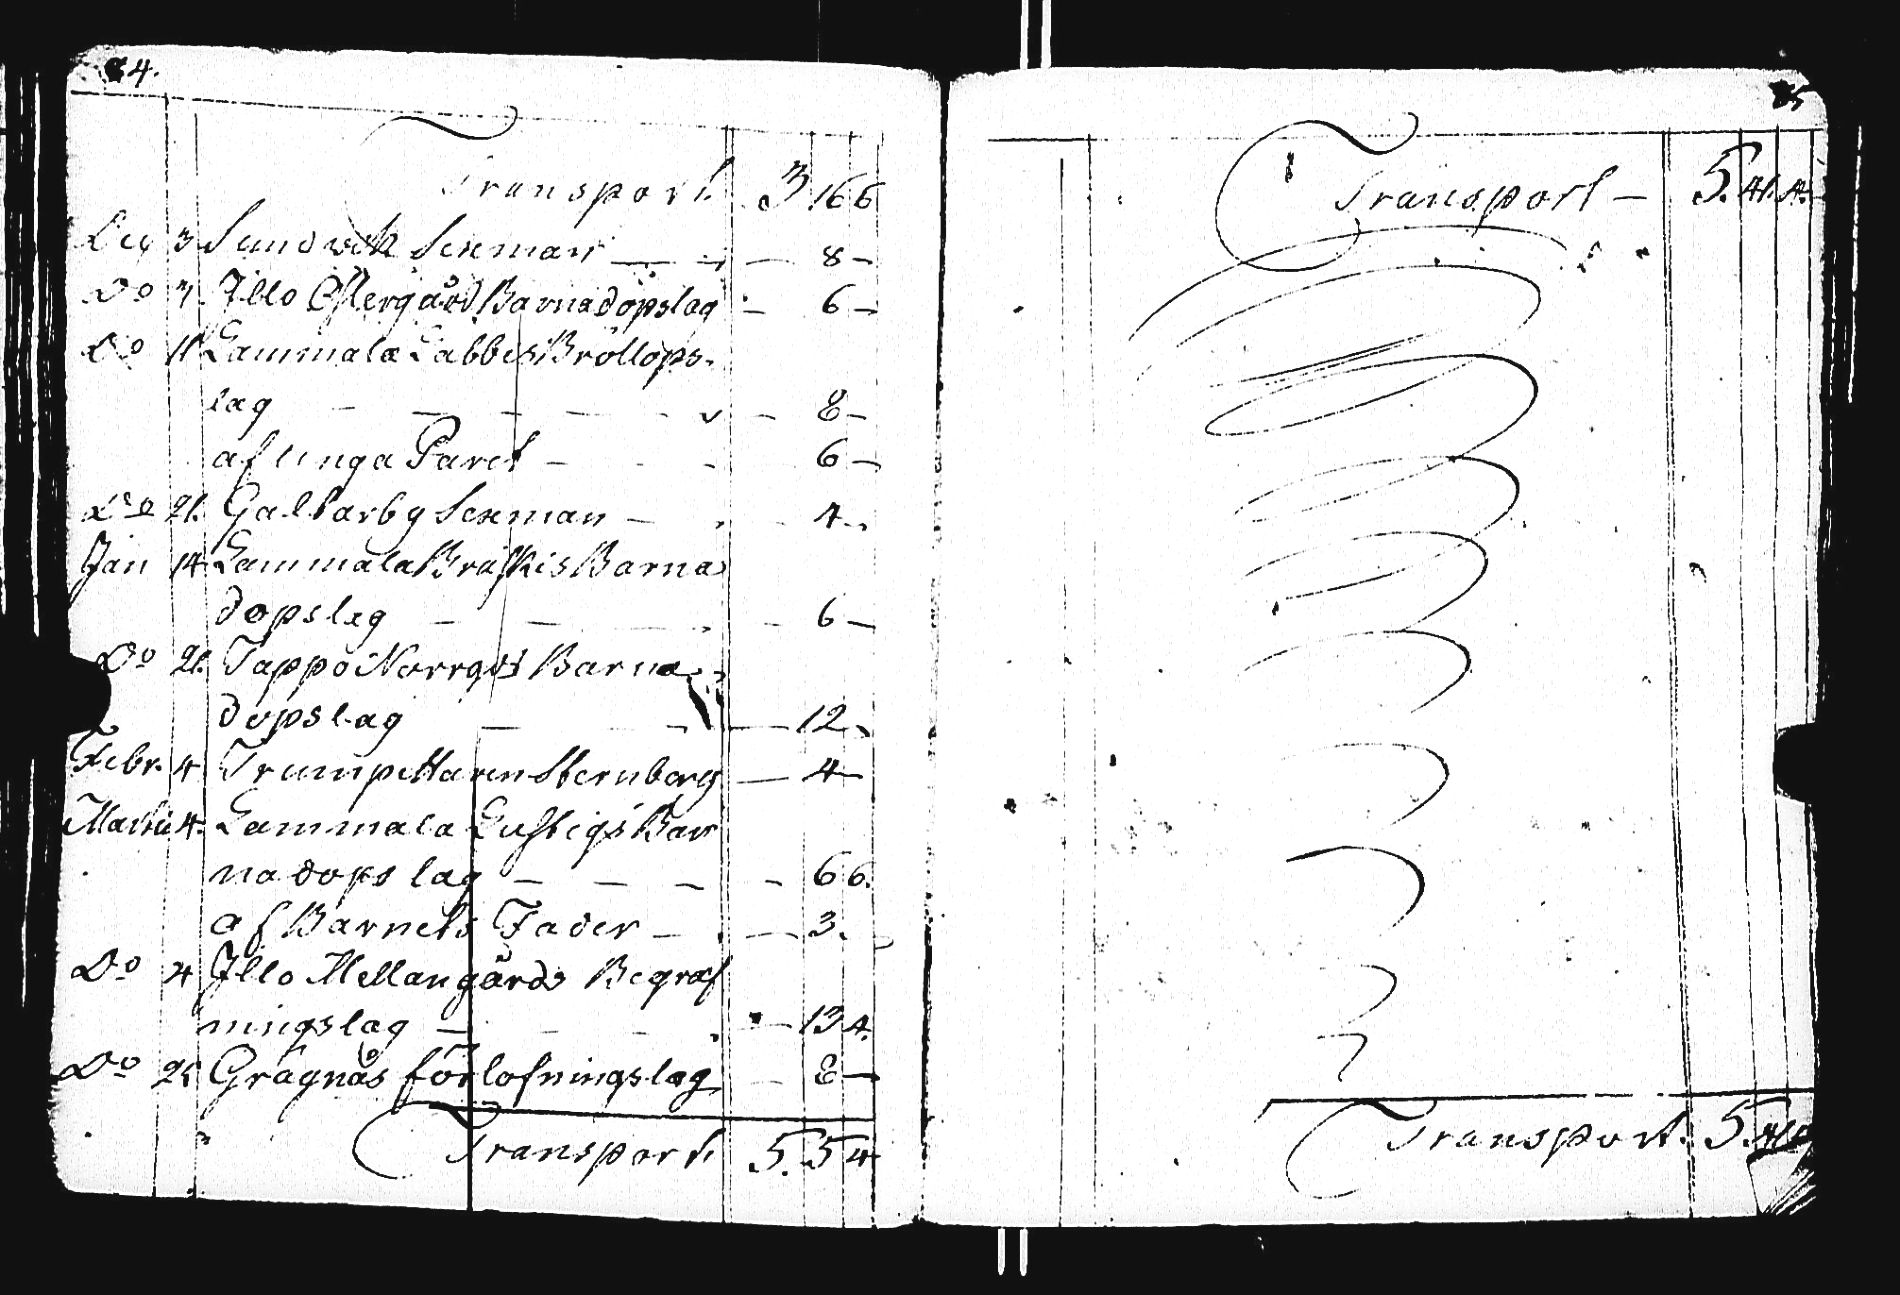 84.
Transport. 3 16 6
Dec 3 Sundvek Sexman — 8 —
Do 3. Illo Östergård Barnadopslag — 6 —
Do 11 Gammala Labbes Bröllops-
lag — — — — — 8 —
af unga Paret — — 6 —
Do 21. Galtarby Sexman — — 4 —
Jan 14 Gammala Bräskis Barna
dopslag — — — 6 —
Do 21. Tappo Norrgds Barna
dopslag — — — 12 —
Febr. 4 Trumpettaren Sternberg — 4 —
Martii 4. Gammala Lustigs Bar
nadops lag — — — — 6 6.
af Barnets Fader — — 3.
Do 4 Illo Mellangårds Begraf
ningslag — — — — 13 4.
Do 25 Grågnäs förlofningslag — 8 —
Transport. 5. 5 4
85
Transport — 5. 41. 4.
Transport. 5.